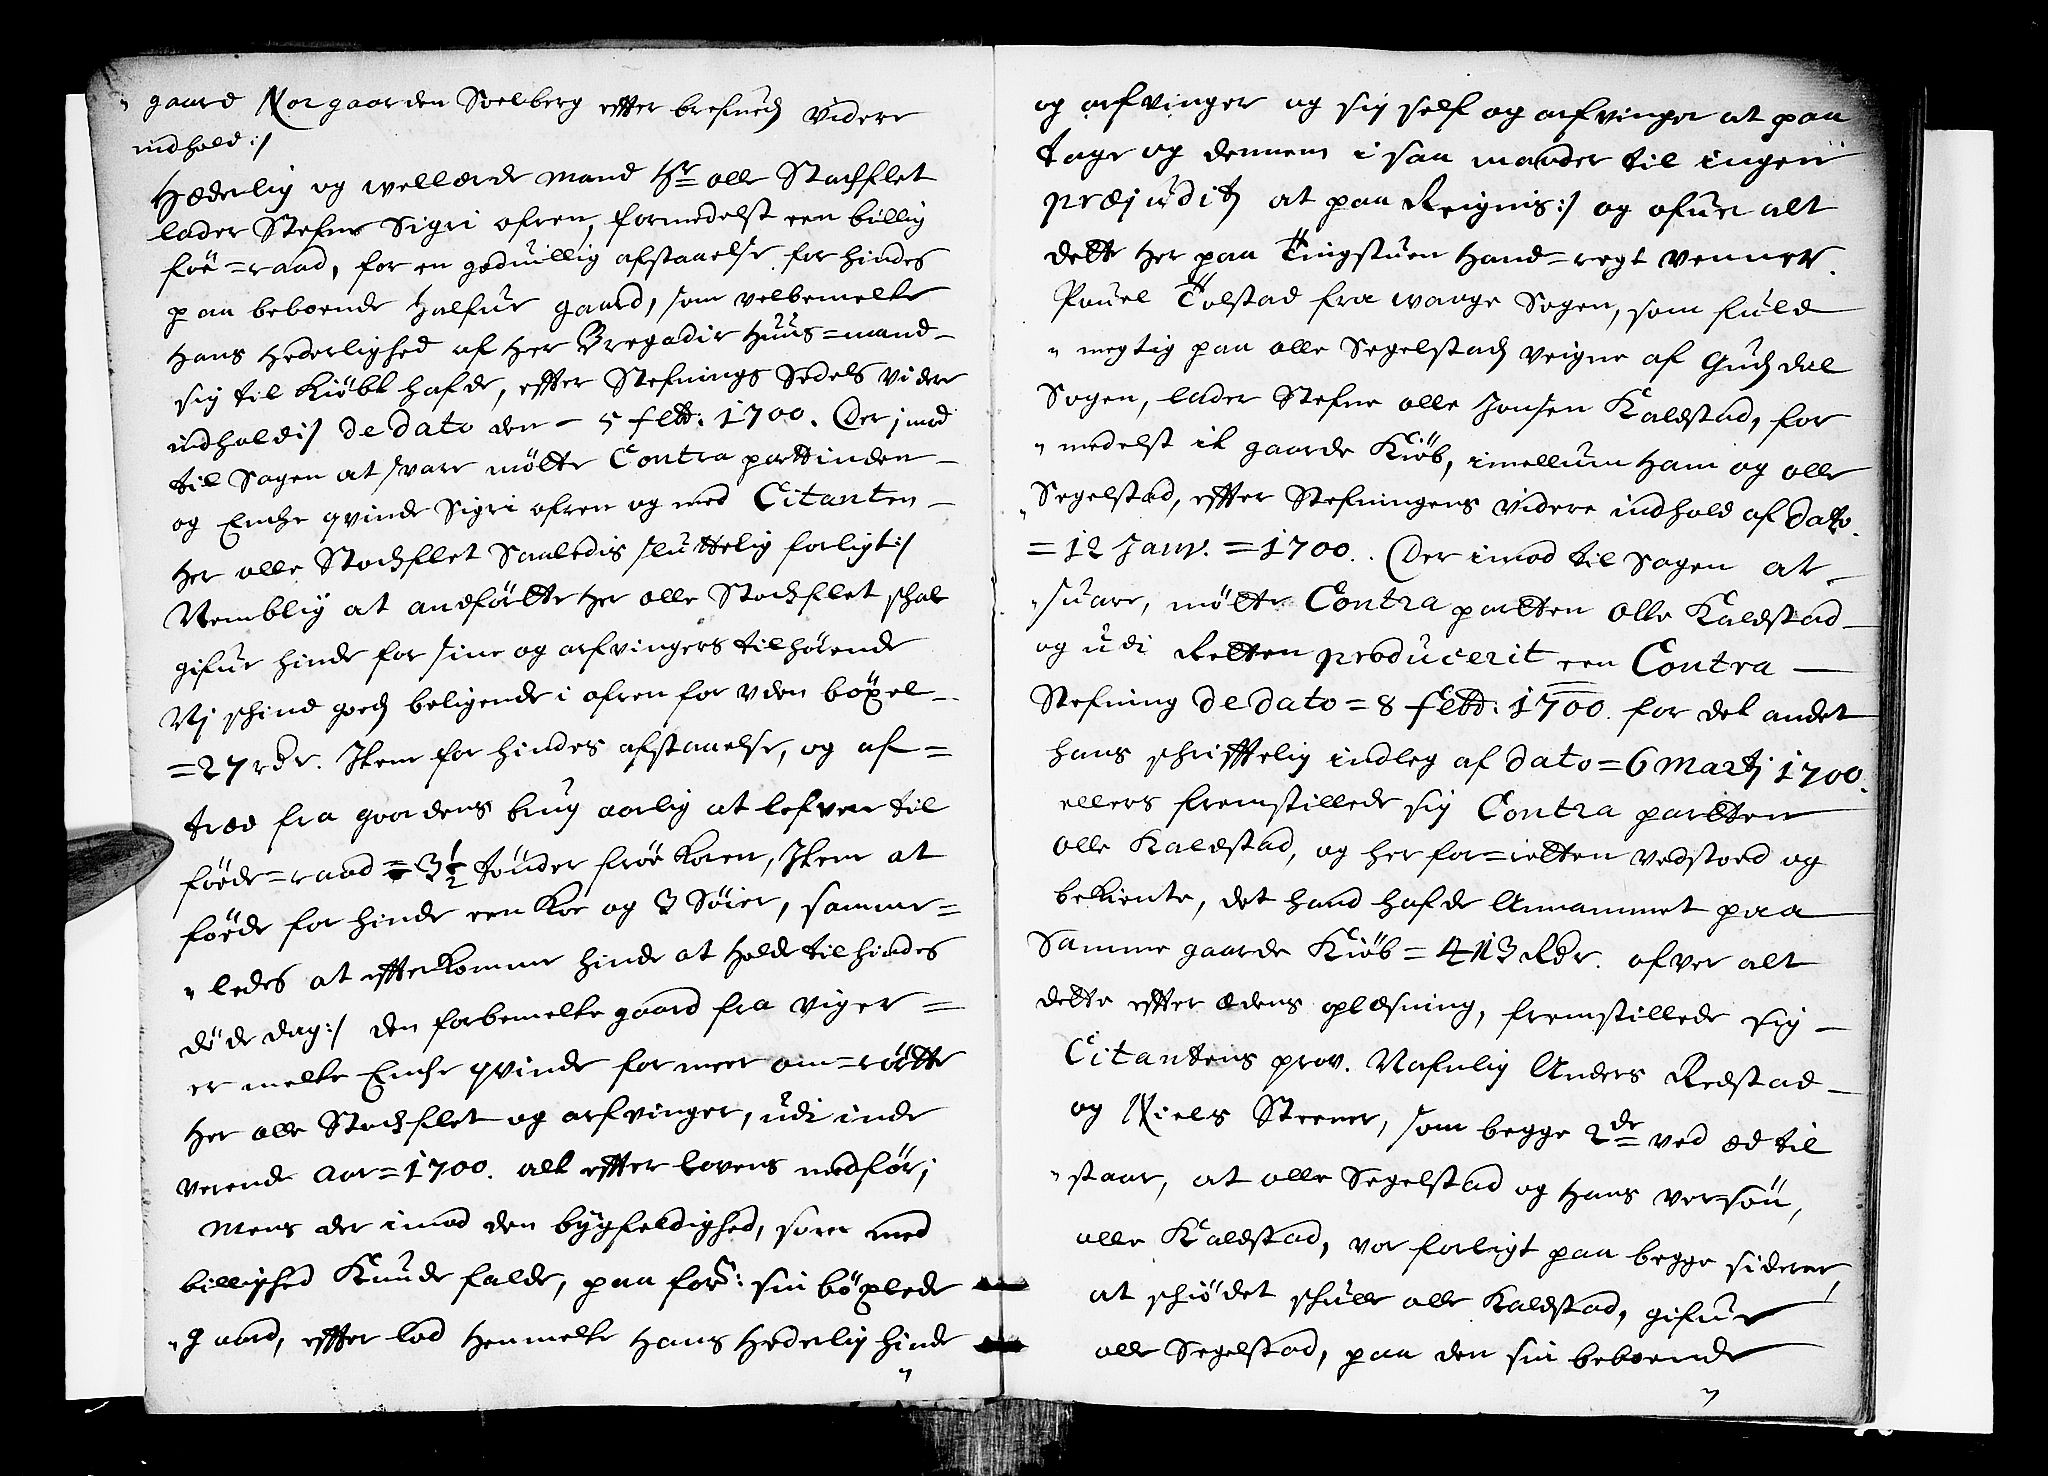 gaard Norgaarden Soelberg effter brefvedz videre
indhold:/
Hæderlig og wellærde Mand Hr olle Stochflet
lader Stefne Sigri ofren, formedelst een billig
foe=raad, for en goduillig afstaaelse for hindes
paa beboende halfue gaard, som velbemelte
Hans Hederlighed af Her Bregadir Huus=mand-
sig til Kiöbt hafde, effter Stefnings Sedels videre
indhold:/ de dato den - 5 febb: 1700. Der imod
til Sagen at svare mötte Contra parttinden-
og Enche qvinde Sigri ofren og med Citanten-
Her olle Stochflet Saaledis sluttelig forligt:/
Nemblig at andfördte Her olle Stochflet schal
gifue hinde for sine og arfvingers tilhörende
Vj schind goedz beligende i ofren for vden böxel-
=27 rdr. Item for hindes afstaaelse, og af=
træd fra gaardens brug aarlig at lefvere til
föede=raad = 3½ tönder fröe Korn, Item at
föede for hinde een Koe og 3 Söier, samme=
"ledes at effterkomme hinde at holde til hindes
döde dag:/ den forbemelte gaard fra viger=
er melte Enche qvinde formeer om=rörtte
Her olle Stochflet og arfvinger, udi inde
verende Aar=1700. alt effter lovens medför;
Mens der imod den bygfeldighed, som med
billighed Kunde falde, paa forn: sin böxlede
"gaard, effter lod Hemelte Hans Hederlig hinde
og arfvinger og sig self og arfvinger at paa
tage og dennem i saa maader til ingen
præjuditz at paa Reignis:/ og ofuer alt
dette her paa Tingstuen Hand=regt venner.
Pouel Tolstad fra waage Sogen, som fuld
"megtig paa olle Segelstadz veigne af Gudzdal
Sogen, lader Stefne olle Jonsen Kaldstad, for
"medelst it gaarde Kiöb, imellum ham og olle
Segelstad, effter Stefningens videre indhold af dato.
=12 Janv. =1700.. Der imod til Sagen at-
"suare, mötte Contra partten olle Kaldstad-
og udi Retten producerit een Contra-
Stefning de dato = 8 febb: 1700. for det andet
hans schrifftelig indleg af dato = 6 Martj 1700.
ellers fremstillede sig Contra partten
olle Kaldstad, og her for=retten vedstoed og
bekiente, det hand hafde Annammet paa
Samme gaarde Kiöb = 413 Rdr. ofver alt
dette effter ædens oplæsning, fremstillede sig-
Citantens prov. Nafnlig Anders Redstad-
og Niels Steener, som begge 2de ved æd til
"staar, at olle Segelstad og hans versön,
olle Kaldstad, var forligt paa begge siderne,
at schiödet schulle olle Kaldstad, gifue
olle Segelstad, paa den sin beboende